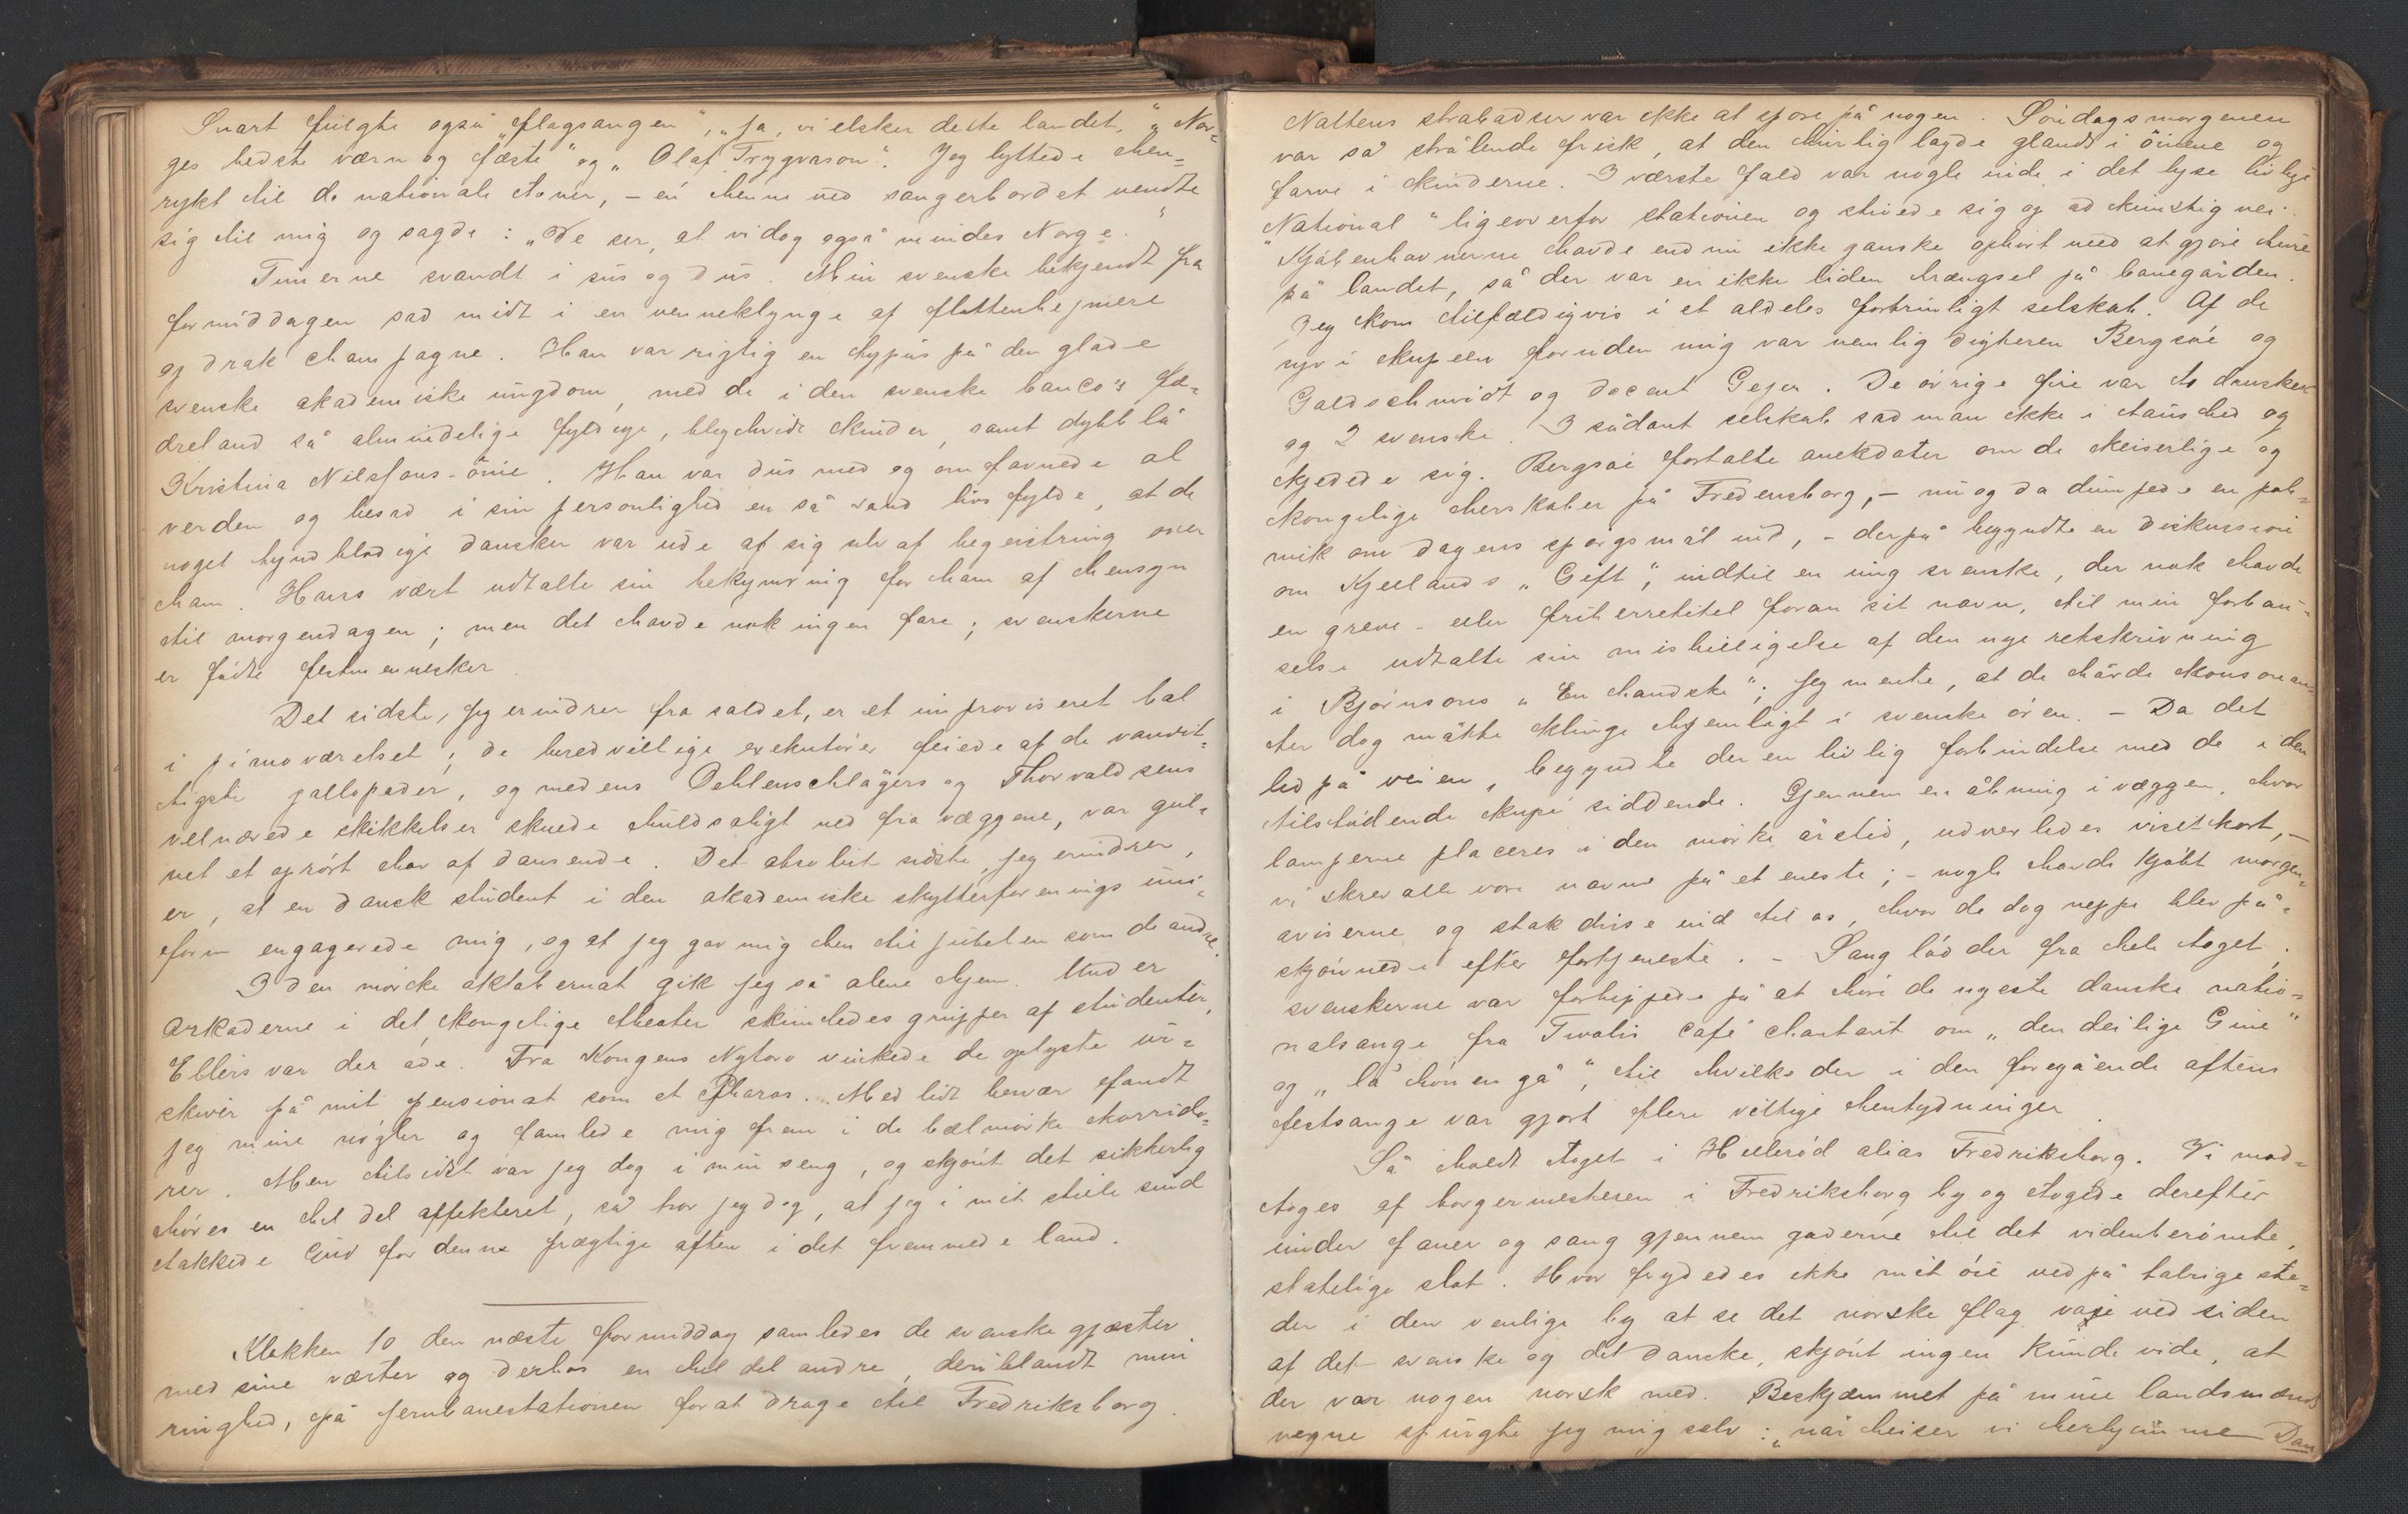 Snart fulgte også „flagsangen", „Ja, vi elsker dette landet," „Nor-
ges bedste værn og fæste" og „Olaf Trygvason". Jeg lyttede hen-
rykt til de nationale toner, – en henne ved sangerbordet vendte
sig til mig og sagde: „De ser, at vi dog også mindes Norge."
Timerne svandt i sus og dus. Min svenske bekjendt fra
formiddagen sad midt i en venneklynge af flottenhejmere
og drak champagne. Han var rigtig en typus på den glade
svenske akademiske ungdom, med de i den svenske banco's fæ-
dreland så almindelige fyldige, bleghvide kinder, samt dybblå
Kristina Nilssons-öine. Han var dus med og omfavnede al
verden og besad i sin personlighed en så sand livsfylde, at de
noget tyndblodige dansker var ude af sig selv af begeistring over
ham. Hans vært udtalte sin bekymring for ham af hensyn
til morgendagen; men det havde nok ingen fare; svenskerne
er födte festmennesker.
Det sidste, jeg erindrer fra saldet, er et improviseret bal
i pianoværelset; de beredvillige exekutörer feiede af de vanvit-
tigste galopader, og medens Oehlenschlägers og Thorvaldsens
velnærede skikkelser skuede huldsaligt ned fra væggene, var gul-
vet et oprört hav af dansende. Det absolut sidste, jeg erindrer,
er, at en dansk student i den akademiske skytterforenings uni-
form engagerede mig, og at jeg gav mig hen til jubelen som de andre.
I den mörcke oktobernat gik jeg så alene hjem. Under
arkaderne i det kongelige theater skimtedes grupper af studenter,
Ellers var der öde. Fra Kongens Nytorv vinkede de oplyste ur-
skiver på mit pensionat som et Pharos. Med lidt besvær fandt
jeg mine nögler og famlede mig frem i de bælmörke korrido-
rer. Men tilsidst var jeg dog i min seng, og skjönt det sikkerlig
höres en hel del affekteret, så tror jeg dog, at jeg i mit stille sind
takkede Gud for denne prægtige aften i det fremmede land.
Klokken 10 den næste formiddag samledes de svenske gjæster
med sine værter og derhos en hel del andre, deriblandt min
ringhed, på jernbanestationen for at drage til Fredriksborg.
Nattens strabadser var ikke at spore på nogen. Söndagsmorgenen
var så strålende frisk, at den lagde glands i öinene og
farve i kinderne. I værste fald var nogle inde i det lyse livlige
„National" ligeoverfor stationen og stivede sig op ad kunstig vei.
Kjöbenhavnerne havde endnu ikke ganske ophört med at gjöre ture
på landet, så der var en ikke liden trængsel på banegården.
Jeg kom tilfældigvis i et aldeles fortrinligt selskab. Af de
syv i kupeen foruden mig var nemlig digteren Bergsöe og
Goldschmidt og docent Gejer. De övrige fire var to dansker
og 2 svenske. I sådant selskab sad man ikke i taushed og
kjedede sig. Bergsöe fortalte anekdoter om de keiserlige og
kongelige herskaber på Fredensborg, – nu og da dumpede en pole-
mik om dagens spörgsmål ind, – derpå begyndte en diskussion
om Kjellands „Gift", indtil en ung svenske, der nok havde
en greve- eller friherretitel foran sit navn, til min forbau-
selse udtalte sin misbilligelse af den nye retskrivning
i Björnsons „En handske"; jeg mente, at de hårde konsonan-
ter dog måtte klinge hjemligt i svenske ören. – Da det
led på veien, begyndte der en livlig forbindelse med de i den
tilstödende kupé siddende. Gjennem en åbning i væggen, hvor
lamperne placeres i den mörke årstid, udvexledes visitkort, –
vi skrev alle vore navne på et eneste; – nogle havde kjöbt morgen-
aviserne og stak disse ind til os, hvor de dog neppe blev på-
skjönnede efter fortjeneste. – Sang löd der fra hele toget;
svenskerne var forhippede på at höre de nyeste danske natio-
nalsange fra Tivolis café chantant om „den deilige Gine"
og „lå hönen gå", til hvilke der i den foregående aftens
festsange var gjort flere vittige hentydninger.
Så holdt toget i Hilleröd alias Fredriksborg. Vi mod-
toges af borgermesteren i Fredriksborg by og togede derefter
under faner og sang gjennem gaderne til det videntberömte,
statelige slot. Hvor frydedes ikke mit öie ved på talrige ste-
der i den venlige by at se det norske flag vaje ved siden
af det svenske og det danske, skjönt ingen kunde vide, at
der var nogen norsk med. Beskjæmmet på mine landsmænds
vegne spurgte jeg mig selv: „når heiser vi herhjemme Dan